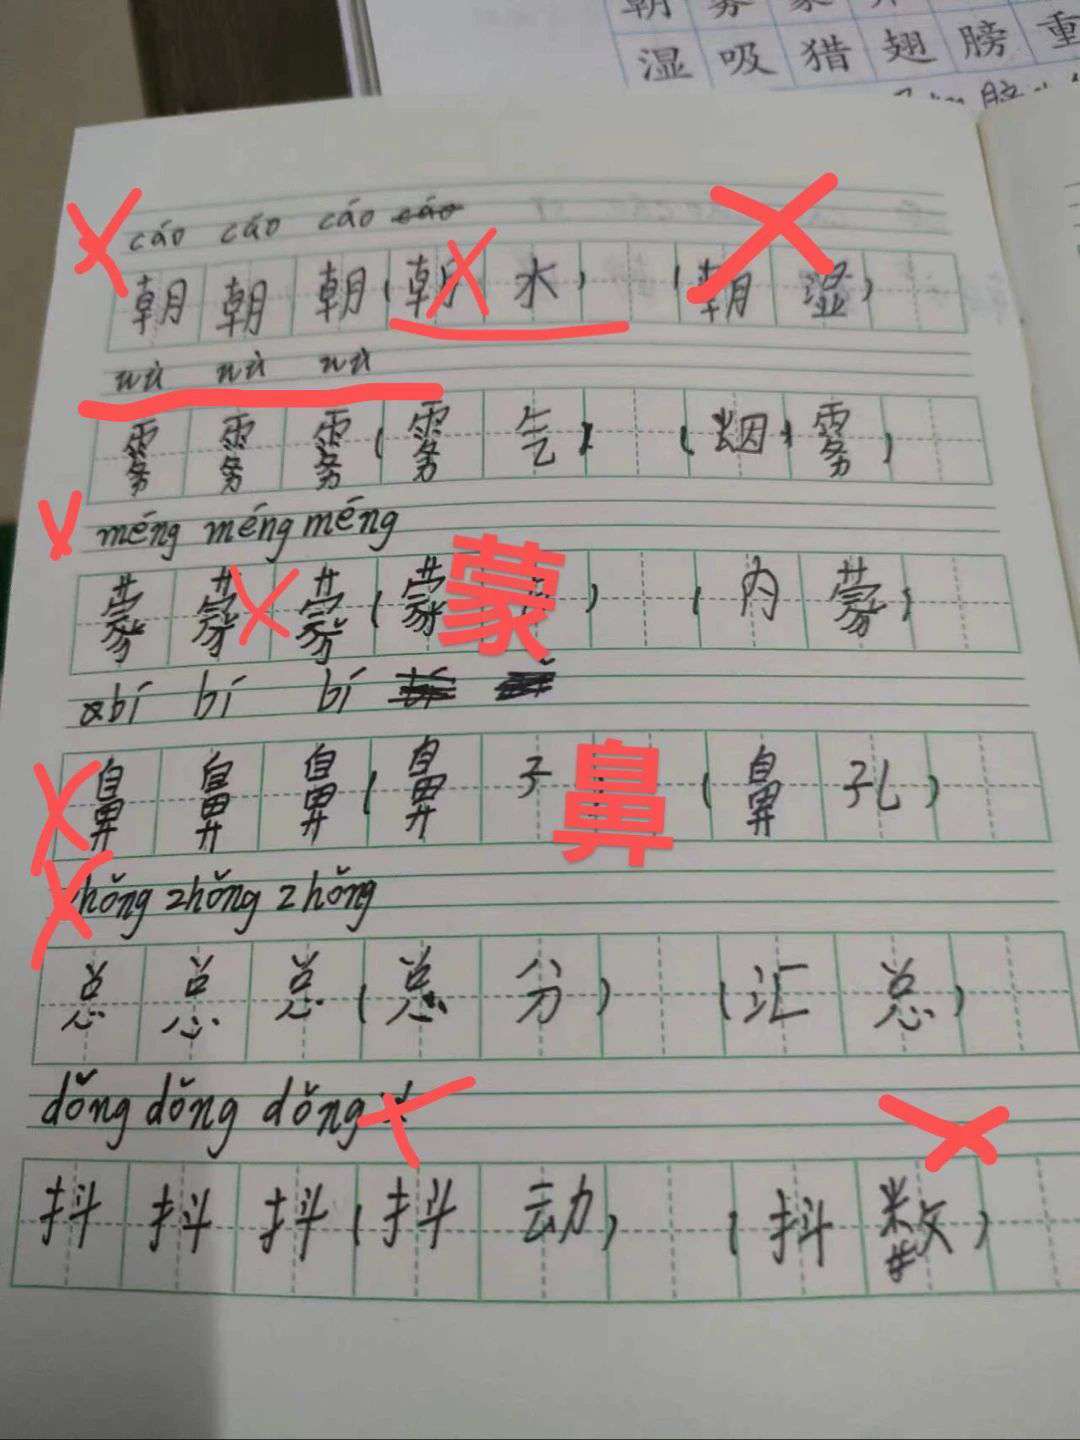 湿 吸 猎 翅 膀 重
cáo cáo cáo cáo
朝 朝 朝 (朝 水) (朝 湿)
wù wù wù
雾 雾 雾 (雾 气) (烟 雾)
méng méng méng
蒙 蒙 蒙 (蒙 蒙 ) (内 蒙)
bí bí bí
鼻 鼻 鼻 (鼻 子 鼻) (鼻 孔)
zhǒng zhǒng zhǒng
总 总 总 (总 分) (汇 总)
dǒng dǒng dǒng
抖 抖 抖 (抖 动) (抖 数)